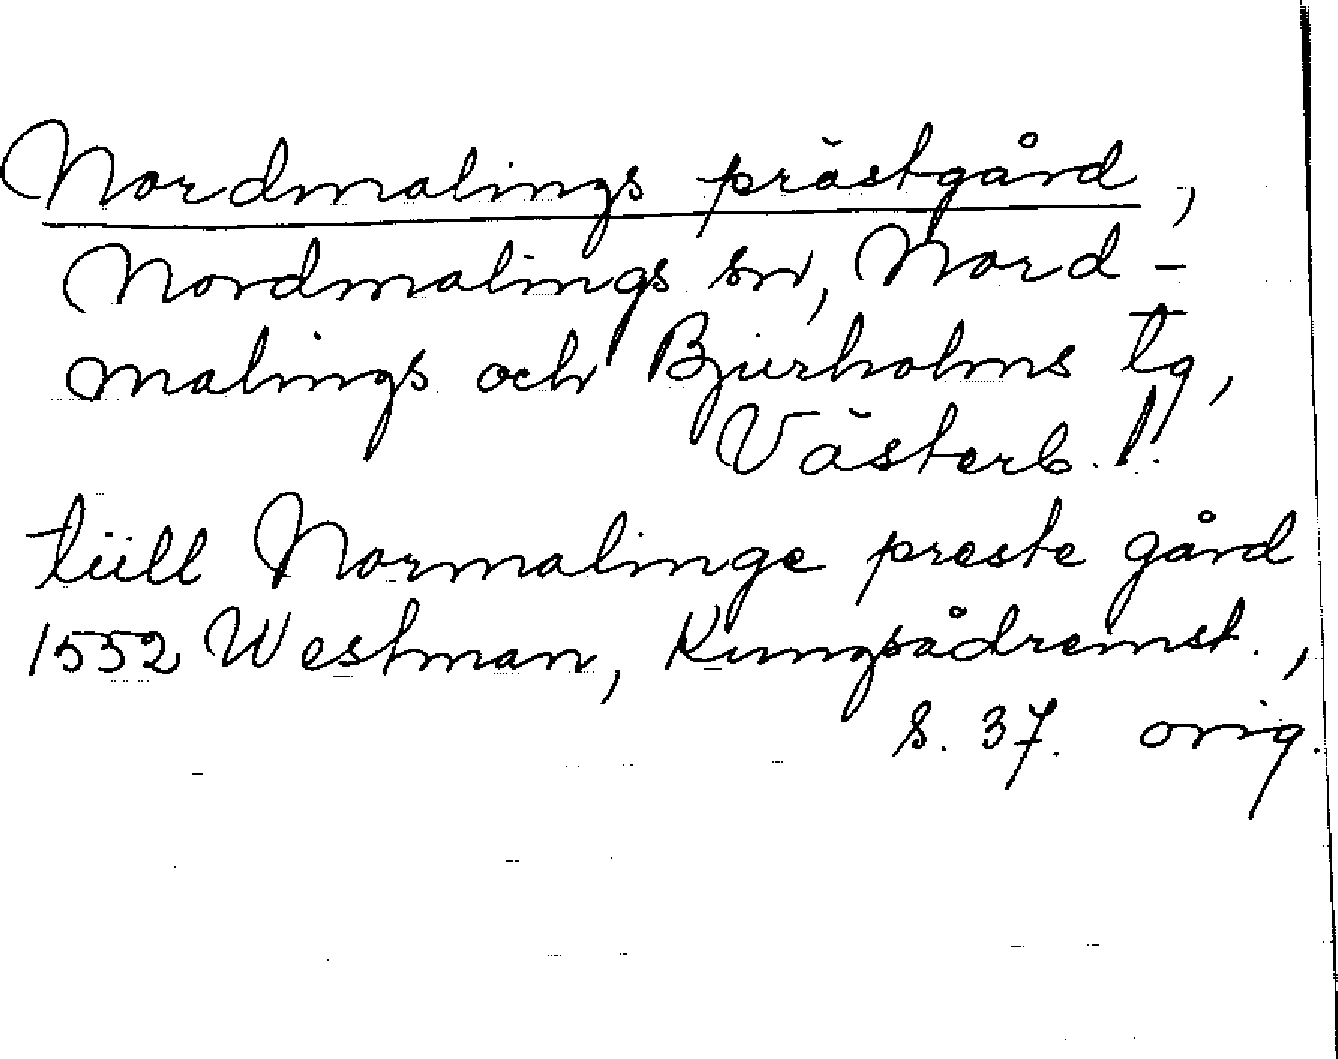 Nordmalings prästgård,
Nordmalings sn, Nord-
malings och Bjurholms tg,
Västerb. l.
tiill Normalinge preste gård
1552 Westman, Kungsådremst.,
s. 37. orig.